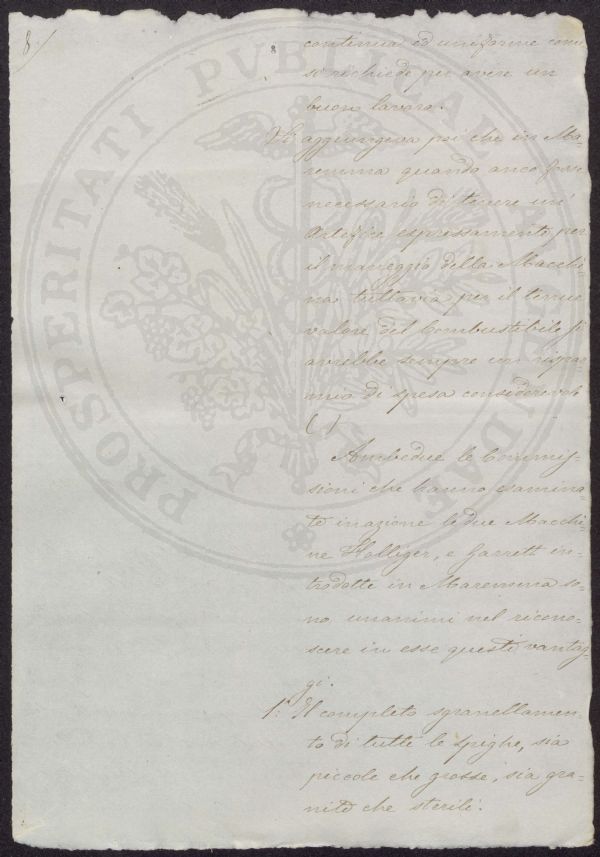 8
8
continua ed uniforme come
si richiede per avere un
buon lavoro.
Vi aggiungeva poi che in Ma-
remma quando anco fosse
necessario di tenere un
Artefice espressamente per
il maneggio della Macchi
na tuttavia per il tenue
valore del Combustibile si
avrebbe sempre un rispar-
mio di spesa considerevole
( )
Ambedue le Commis-
sioni che hanno esamina-
te in azione le due Macchi-
ne Holliger, e Garrett in-
trodotte in Maremma so-
no unanimi nel ricono-
scere in esse questi vantag-
gi.
1.° Il completo sgranellamen-
to di tutte le spighe, sia
piccole che grosse, sia gra-
nite che sterili.
PROSPERITATI PVBLICAE AVGENDAE